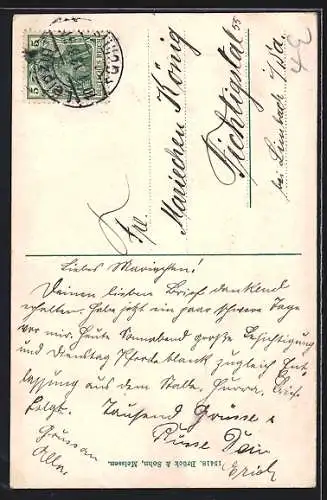 5 5
Leipzig
Frl.
Mariechen König
Fichtigstal 55
bei Limbach i/Sa.
Liebes Mariechen!
Deinen lieben Brief dankend
erhalten. Habe jetzt ein paar schwere Tage
vor mir. Heute Sonnabend große Besichtigung
und Dienstag Pferde blank zugleich Ent
lassung aus dem Stalle. Hurra.
folgt. Tausend Grüsse &
Küsse Dein
Erich
Gruss an
Alle.
15418. Brück & Sohn, Meissen.